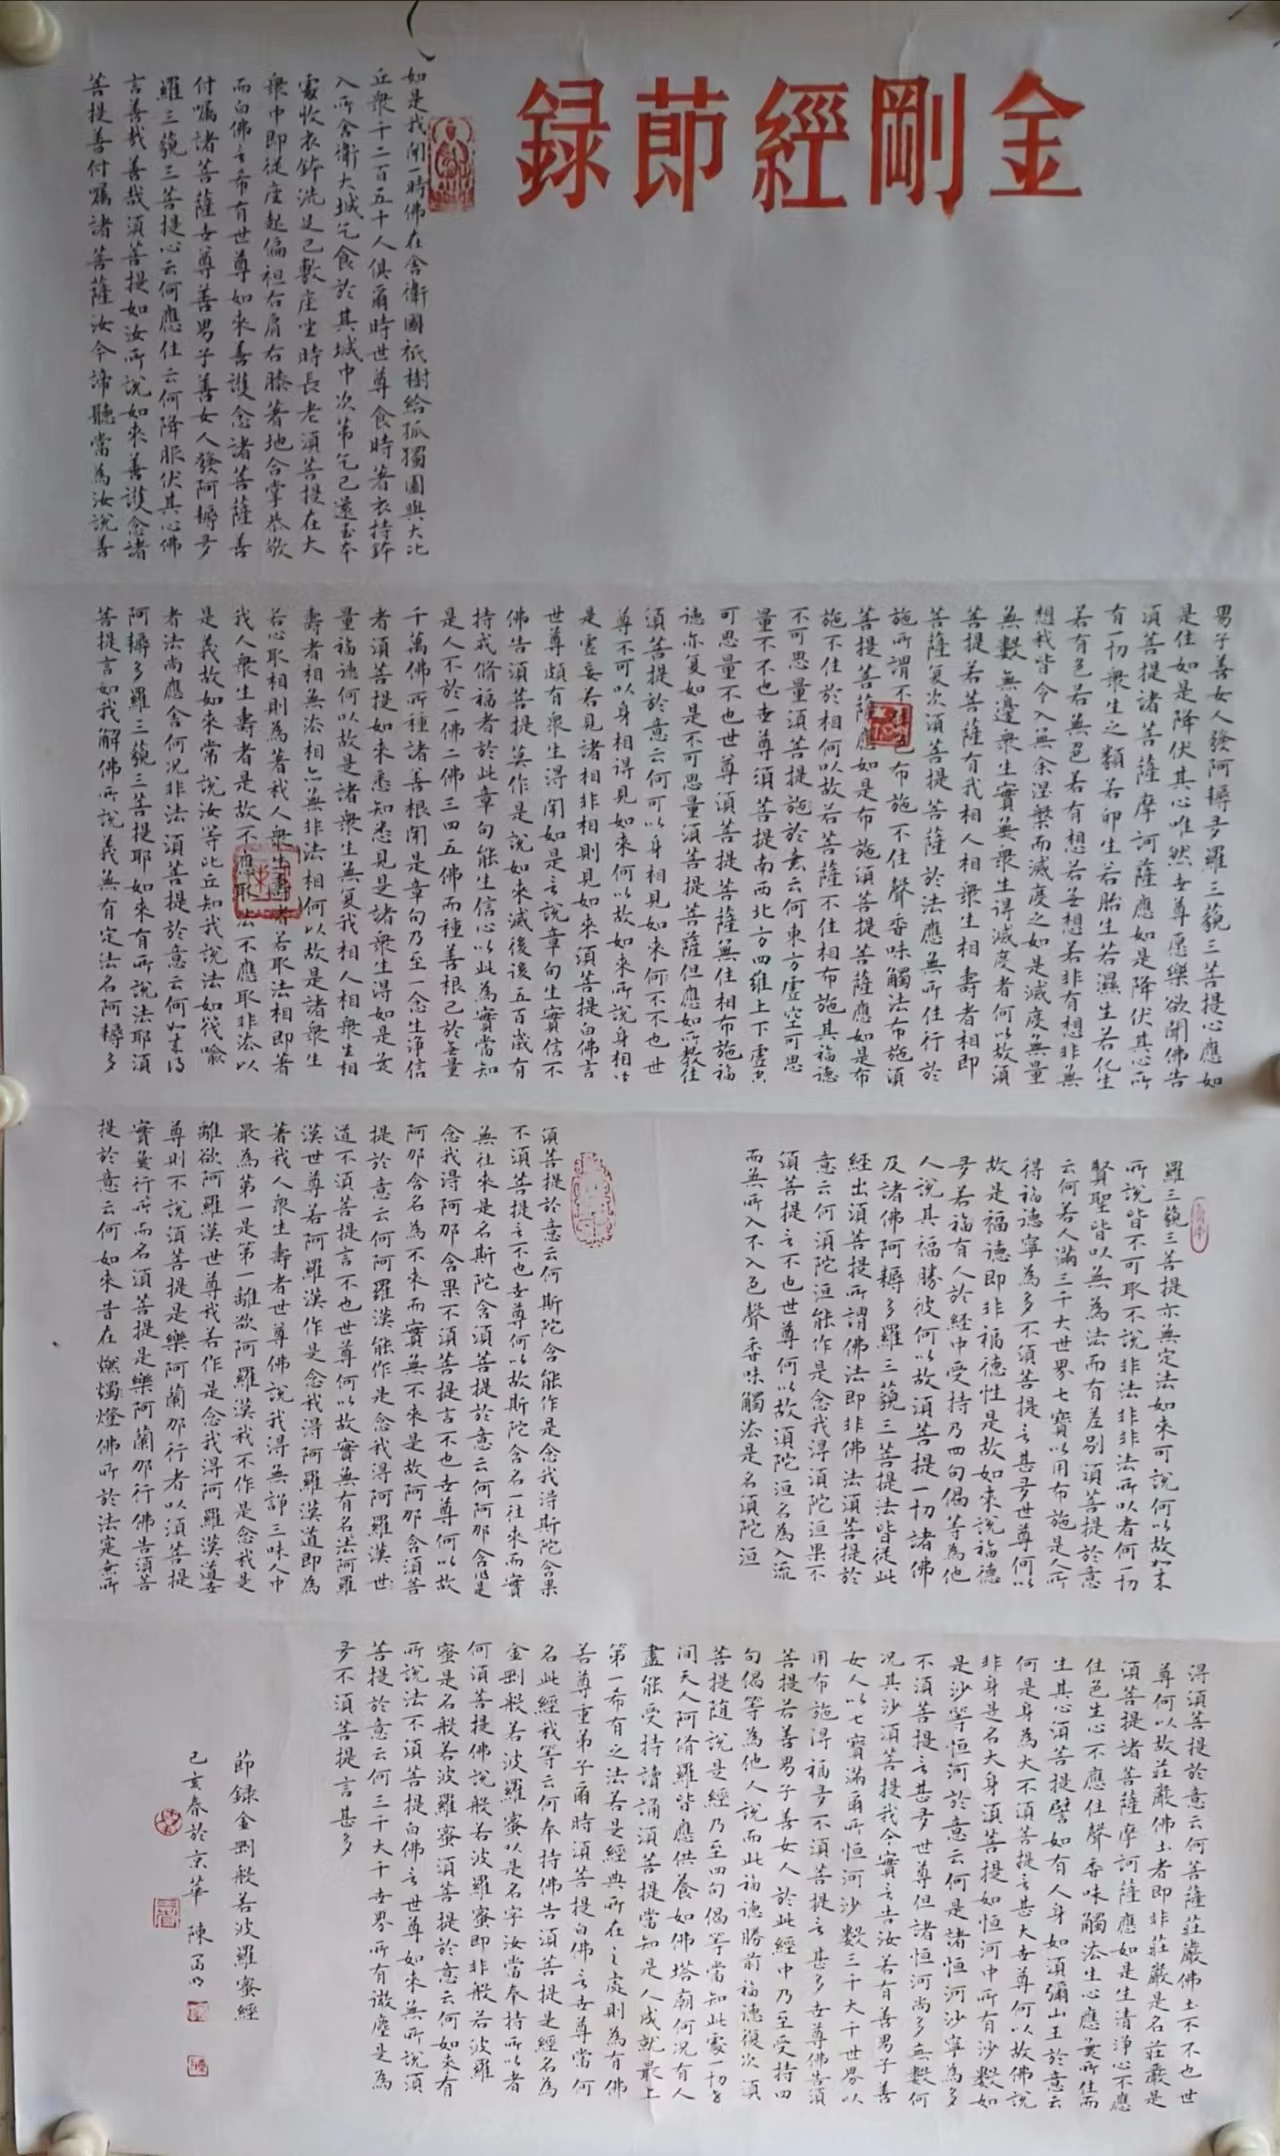 金剛經莭録
如是我聞一時佛在舍衛國祇樹給孤獨園與大比
丘衆千二百五十人俱爾時世尊食時著衣持鉢
入所舍衛大城乞食於其城中次第乞已還至本
處收衣鉢洗足已敷座坐時長老須菩提在大
衆中即從座起偏袒右肩右膝著地合掌恭敬
而白佛言希有世尊如來善護念諸菩薩善
付囑諸菩薩世尊善男子善女人發阿耨多
羅三藐三菩提心云何應住云何降服伏其心佛
言善哉善哉須菩提如汝所說如來善護念諸
菩提善付囑諸菩薩汝今諦聽當為汝說善
男子善女人發阿耨多羅三藐三菩提心應如
是住如是降伏其心唯然世尊愿樂欲聞佛告
須菩提諸菩薩摩訶薩應如是降伏其心所
有一切衆生之類若卵生若胎生若濕生若化生
若有色若無色若有想若無想若非有想非無
想我皆令入無余涅槃而滅度之如是滅度無量
無數無邊衆生實無衆生得滅度者何以故須
菩提若菩薩有我相人相衆生相壽者相即
菩薩复次須菩提菩薩於法應無所住行於
施所謂不色布施不住聲香味觸法布施須
菩提菩薩應如是布施須菩提菩薩應如是布
施不住於相何以故若菩薩不住相布施其福德
不可思量須菩提施於意云何東方虛空可思
量不不也世尊須菩提南西北方四維上下虛空
可思量不也世尊須菩提菩薩無住相布施福
德亦复如是不可思量須菩提菩薩但應如所教住
須菩提於意云何可以身相見如來何不不也世
尊不可以身相得見如來何以故如來所說身相
是虛妄若見諸相非相則見如來須菩提白佛言
世尊頗有衆生得聞如是言說章句生實信不
佛告須菩提莫作是說如來滅後後五百歲有
持戒脩福者於此章句能生信心以此為實當知
是人不於一佛二佛三四五佛而種善根已於無量
千萬佛所種諸善根聞是章句乃至一念生淨信
者須菩提如來悉知悉見是諸衆生得如是無
量福德何以故是諸衆生無复我相人相衆生相
壽者相無法相亦無非法相何以故是諸衆生
若心取相則為著我人衆生壽者若取法相即著
我人衆生壽者是故不應取法不應取非法以
是義故如來常說汝等比丘知我說法如筏喻
者法尚應舍何況非法須菩提於意云何如来得
阿耨多羅三藐三菩提耶如來有所說法耶須
菩提言如我解佛所說義無有定法名阿耨多
羅三藐三菩提亦無定法如來可說何以故如来
所說皆不可取不說非法非非法所以者何一切
賢聖皆以無為法而有差别須菩提於意
云何若人滿三千大世界七寶以用布施是人所
得福德寧為多不須菩提言甚多世尊何以
故是福德即非福德性是故如來說福德
多若福有人於經中受持乃四句偈等為他
人說其福勝彼何以故須菩提一切諸佛
及諸佛阿耨多羅三藐三菩提法皆從此
經出須菩提所謂佛法即非佛法須菩提於
意云何須陀洹能作是念我得須陀洹果不
須菩提言不也世尊何以故須陀洹名為入流
而無所入不入色聲香味觸法是名須陀洹
須菩提於意云何斯陀含能作是念我得斯陀含果
不須菩提言不也世尊何以故斯陀含名一往來而實
無往來是名斯陀含須菩提於意云何阿那含能是
念我得阿那含果不須菩提言不也世尊何以故
阿那含名為不來而實無不來是故阿那含須菩
提於意云何阿羅漢能作是念我得阿羅漢世
道不須菩提言不也世尊何以故實無有名法阿羅
漢世尊若阿羅漢作是念我得阿羅漢道即為
著我人衆生壽者世尊佛說我得無諍三味人中
最為第一是第一離欲阿羅漢我不作是念我是
離欲阿羅漢世尊我若作是念我得阿羅漢道世
尊則不說須菩提是樂阿蘭那行者以須菩提
實無行所而名須菩提是樂阿蘭那行佛告須菩
提於意云何如來昔在燃燭燈佛所於法寔無所
得須菩提於意云何菩薩莊嚴佛土不不也世
尊何以故莊嚴佛土者即非莊嚴是名莊嚴是
須菩提諸菩薩摩訶薩應如是生清淨心不應
住色生心不應住聲香味觸法生心應無所住而
生其心須菩提譬如有人身如須彌山王於意云
何是身為大不須菩提言甚大世尊何以故佛說
非身是名大身須菩提如恒河中所有沙數如
是沙等恒河於意云何是諸恒河沙寧為多
不須菩提言甚多世尊但諸恒河尚多無數何
況其沙須菩提我今實言告汝若有善男子善
女人以七寶滿爾所恒河沙數三千大千世界以
用布施得福多不須菩提言甚多世尊佛告須
菩提若善男子善女人於此經中乃至受持四
句偈等為他人說而此福德勝前福德復次須
菩提随說是經乃至四句偈等當知此處一切世
間天人阿脩羅皆應供養如佛塔廟何況有人
盡能受持讀誦須菩提當知是人成就最上
第一希有之法若是經典所在之處則為有佛
善尊重弟子爾時須菩提白佛言世尊當何
名此經我等云何奉持佛告須菩提是經名為
金剛般若波羅蜜以是名字汝當奉持所以者
何須菩提佛說般若波羅蜜即非般若波羅
蜜是名般若波羅蜜須菩提於意云何如來有
所說法不須菩提白佛言世尊如來無所說須
菩提於意云何三千大千世界所有微塵是為
多不須菩提言甚多
莭録金剛般若波羅蜜經
己亥春於京華 陳